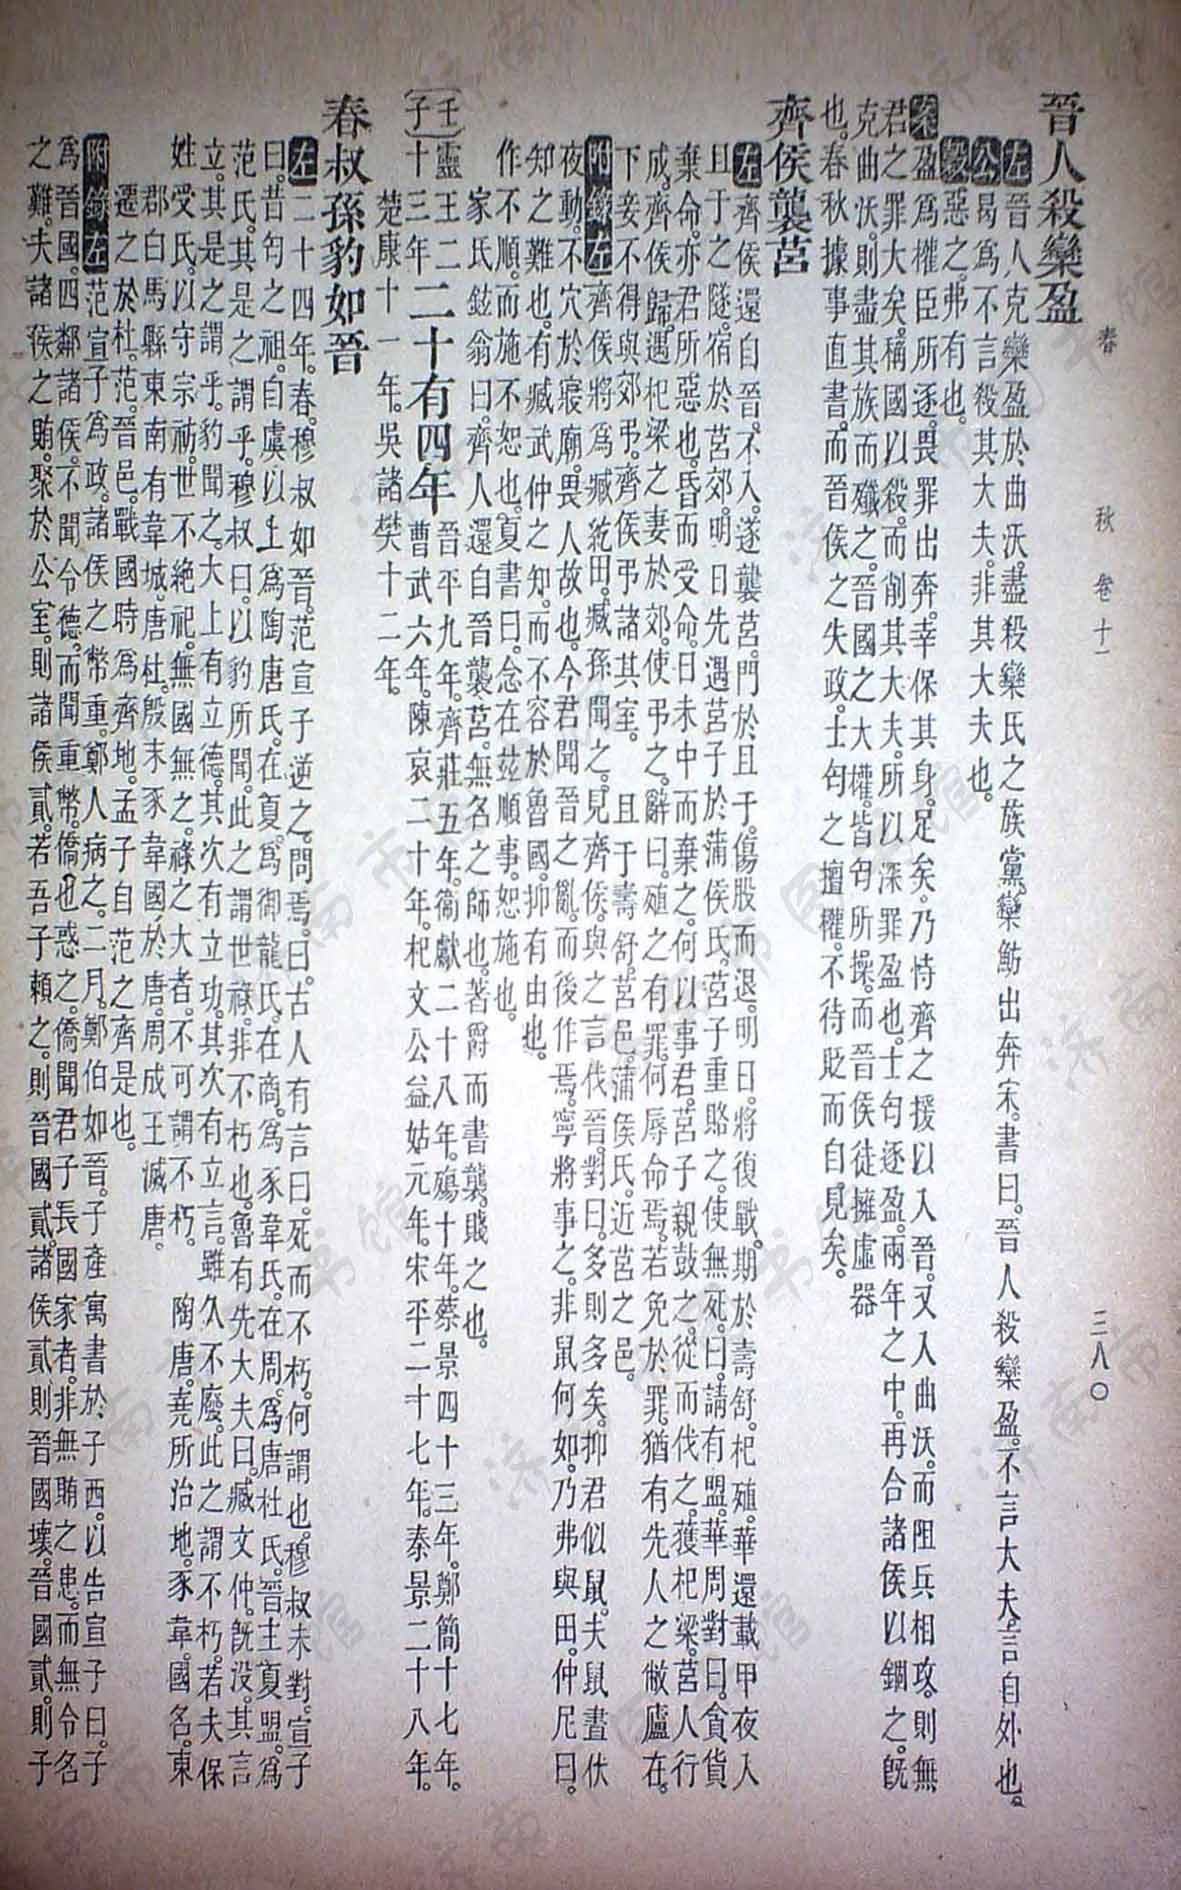 春　秋　卷十一　三八〇
晉人殺欒盈
左晉人克欒盈於曲沃。盡殺欒氏之族黨。欒魴出奔宋。書曰。晉人殺欒盈。不言大夫。言自外也。
公曷爲不言殺其大夫。非其大夫也。
穀惡之。弗有也。
案盈爲權臣所逐。畏罪出奔。幸保其身。足矣。乃恃齊之援以入晉。又入曲沃。而阻兵相攻。則無
君之罪大矣。稱國以殺。而削其大夫。所以深罪盈也。士匄逐盈。兩年之中。再合諸侯以錮之。既
克曲沃。則盡其族而殲之。晉國之大權。皆匄所操。而晉侯徒擁虛器
也。春秋據事直書。而晉侯之失政。士匄之擅權。不待貶而自見矣。
齊侯襲莒
左齊侯還自晉。不入。遂襲莒。門於且于。傷股而退。明日。將復戰。期於壽舒。杞殖。華還載甲夜入
且于之隧。宿於莒郊。明日先遇莒子於蒲侯氏。莒子重賂之。使無死。曰。請有盟。華周對曰。貪貨
棄命。亦君所惡也。昏而受命。日未中而棄之。何以事君。莒子親鼓之。從而伐之。獲杞梁。莒人行
成。齊侯歸。遇杞梁之妻於郊。使弔之。辭曰。殖之有罪。何辱命焉。若免於罪。猶有先人之敝廬在。
下妾不得與郊弔。齊侯弔諸其室。　且于壽舒。莒邑。蒲侯氏。近莒之邑。
附錄左齊侯將爲臧紇田。臧孫聞之。見齊侯。與之言伐晉。對曰。多則多矣。抑君似鼠。夫鼠晝伏
夜動。不穴於寢廟。畏人故也。今君聞晉之亂。而後作焉。寧將事之。非鼠何如。乃弗與田。仲尼曰。
知之難也。有臧武仲之知。而不容於魯國。抑有由也。
作不順。而施不恕也。夏書曰。念在茲順事。恕施也。
家氏鉉翁曰。齊人還自晉襲莒。無名之師也。著爵而書襲。賤之也。
(壬子)靈王二十三年二十有四年晉平九年。齊莊五年。衞獻二十八年。殤十年。蔡景四十三年。鄭簡十七年。
曹武六年。陳哀二十年。杞文公益姑元年。宋平二十七年。秦景二十八年。
楚康十一年。吳諸樊十二年。
春叔孫豹如晉
左二十四年。春。穆叔如晉。范宣子逆之。問焉。曰。古人有言曰。死而不朽。何謂也。穆叔未對。宣子
曰。昔匄之祖。自虞以上爲陶唐氏。在夏。爲御龍氏。在商。爲豕韋氏。在周。爲唐杜氏。晉主夏盟。爲
范氏。其是之謂乎。穆叔曰。以豹所聞。此之謂世祿。非不朽也。魯有先大夫曰。臧文仲。既沒。其言
立。其是之謂乎。豹聞之。大上有立德。其次有立功。其次有立言。雖久不廢。此之謂不朽。若夫保
姓受氏。以守宗祊。世不絶祀。無國無之。祿之大者。不可謂不朽。　陶唐。堯所治地。豕韋。國名。東
郡白馬縣東南有韋城。唐杜。殷末豕韋國於唐。周成王滅唐。
遷之於杜。范。晉邑。戰國時爲齊地。孟子自范之齊是也。
附錄左范宣子爲政。諸侯之幣重。鄭人病之。二月。鄭伯如晉。子產寓書於子西。以告宣子曰。子
爲晉國。四鄰諸侯。不聞令德。而聞重幣。僑也惑之。僑聞君子長國家者。非無賄之患。而無令名
之難。夫諸侯之賄。聚於公室。則諸侯貳。若吾子賴之。則晉國貳。諸侯貳則晉國壞。晉國貳。則子